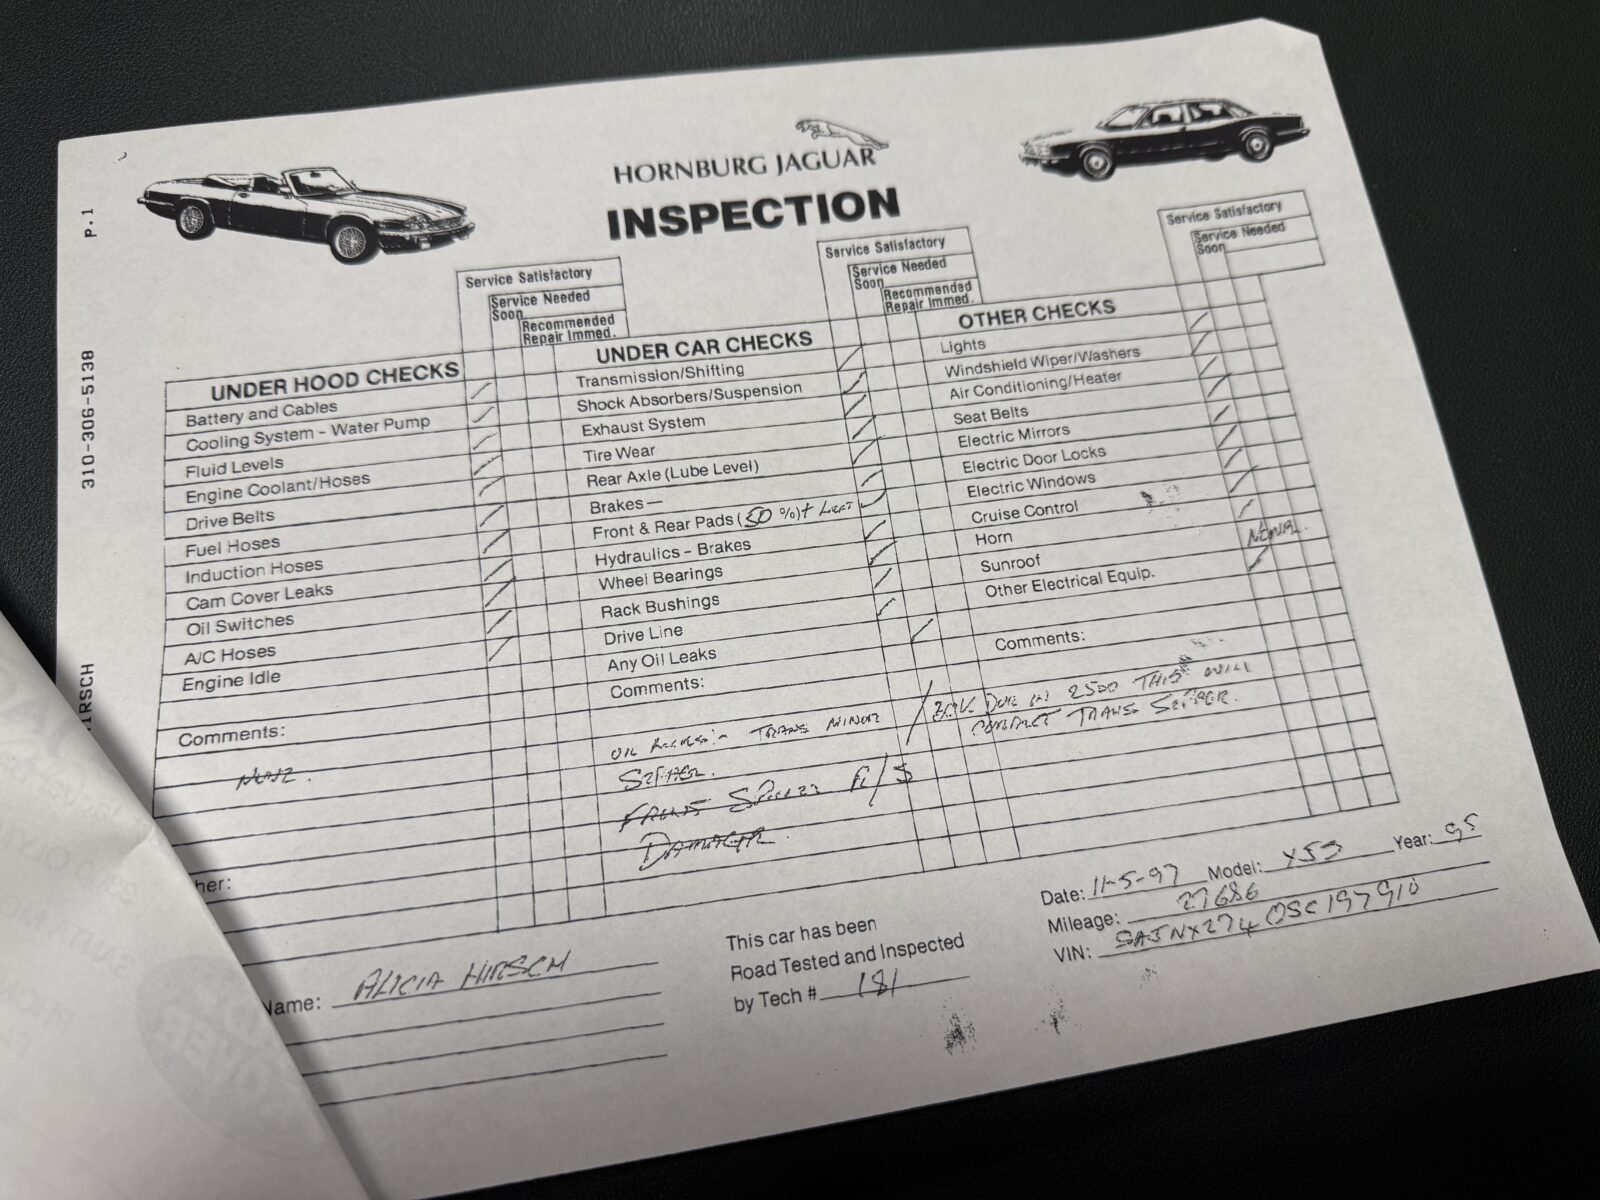 HORNBURG JAGUAR
INSPECTION
P.1
310-306-5138
HIRSCH
Service Satisfactory
Service Needed
Soon
Recommended
Repair Immed.
UNDER HOOD CHECKS
Battery and Cables
Cooling System - Water Pump
Fluid Levels
Engine Coolant/Hoses
Drive Belts
Fuel Hoses
Induction Hoses
Cam Cover Leaks
Oil Switches
A/C Hoses
Engine Idle
Comments:
NONE.
her:
Service Satisfactory
Service Needed
Soon
Recommended
Repair Immed.
UNDER CAR CHECKS
Transmission/Shifting
Shock Absorbers/Suspension
Exhaust System
Tire Wear
Rear Axle (Lube Level)
Brakes—
Front & Rear Pads (50 %)+ LEFT
Hydraulics - Brakes
Wheel Bearings
Rack Bushings
Drive Line
Any Oil Leaks
Comments:
OIL TRANS MINOR
SEEPAGE.
FRONT SPOILER R/S
DAMAGE.
Service Satisfactory
Service Needed
Soon
OTHER CHECKS
Lights
Windshield Wiper/Washers
Air Conditioning/Heater
Seat Belts
Electric Mirrors
Electric Door Locks
Electric Windows
Cruise Control
Horn
Sunroof
Other Electrical Equip.
Comments:
30K DUE IN 2500 THIS WILL
CORRECT TRANS SEEPAGE.
Name: ALICIA HIRSCH
This car has been
Road Tested and Inspected
by Tech # 181
Date: 11-5-97 Model: XJS Year: 95
Mileage: 27686
VIN: SAJNX2740SC197910